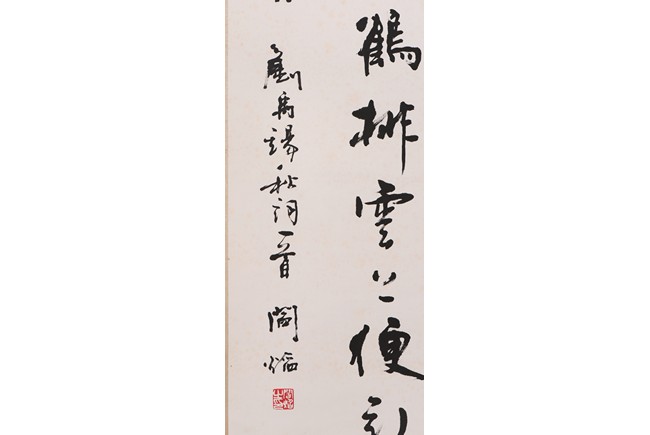 鶴排雲上便引
劉禹錫秋詞一首 閻